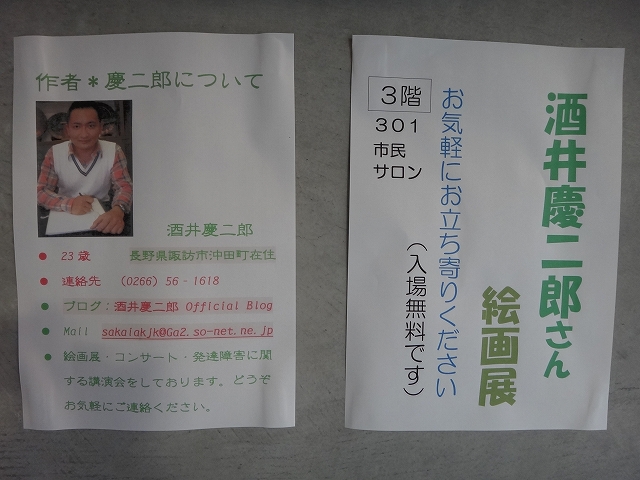 作者＊慶二郎について
酒井慶二郎
● 23歳　長野県諏訪市沖田町在住
● 連絡先　（0266）56‐1618
● ブログ：酒井慶二郎 Official Blog
● Mail　sakaiakjk@Ga2.so-net.ne.jp
● 絵画展・コンサート・発達障害に関
する講演会をしております。どうぞ
お気軽にご連絡ください。
酒井慶二郎さん
絵画展
お気軽にお立ち寄りください
（入場無料です）
３階
３０１
市民
サロン